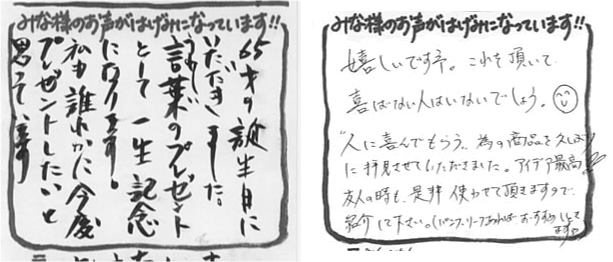 みな様のお声がはげみになっています!!
65才の誕生日に
いただきました。
言葉のプレゼント
として一生記念
になります。
私も誰かに今度
プレゼントしたいと
思っています
みな様のお声がはげみになっています!!
嬉しいです予。これを頂いて
喜ばない人はいないでしょう。
"人に喜んでもらう"為の商品を久しぶり
に拝見させていただきました。アイデア最高!!
友人の時も、是非使わせて頂きますので
紹介して下さい。(パンフ、リーフあれば おすすめして
ます